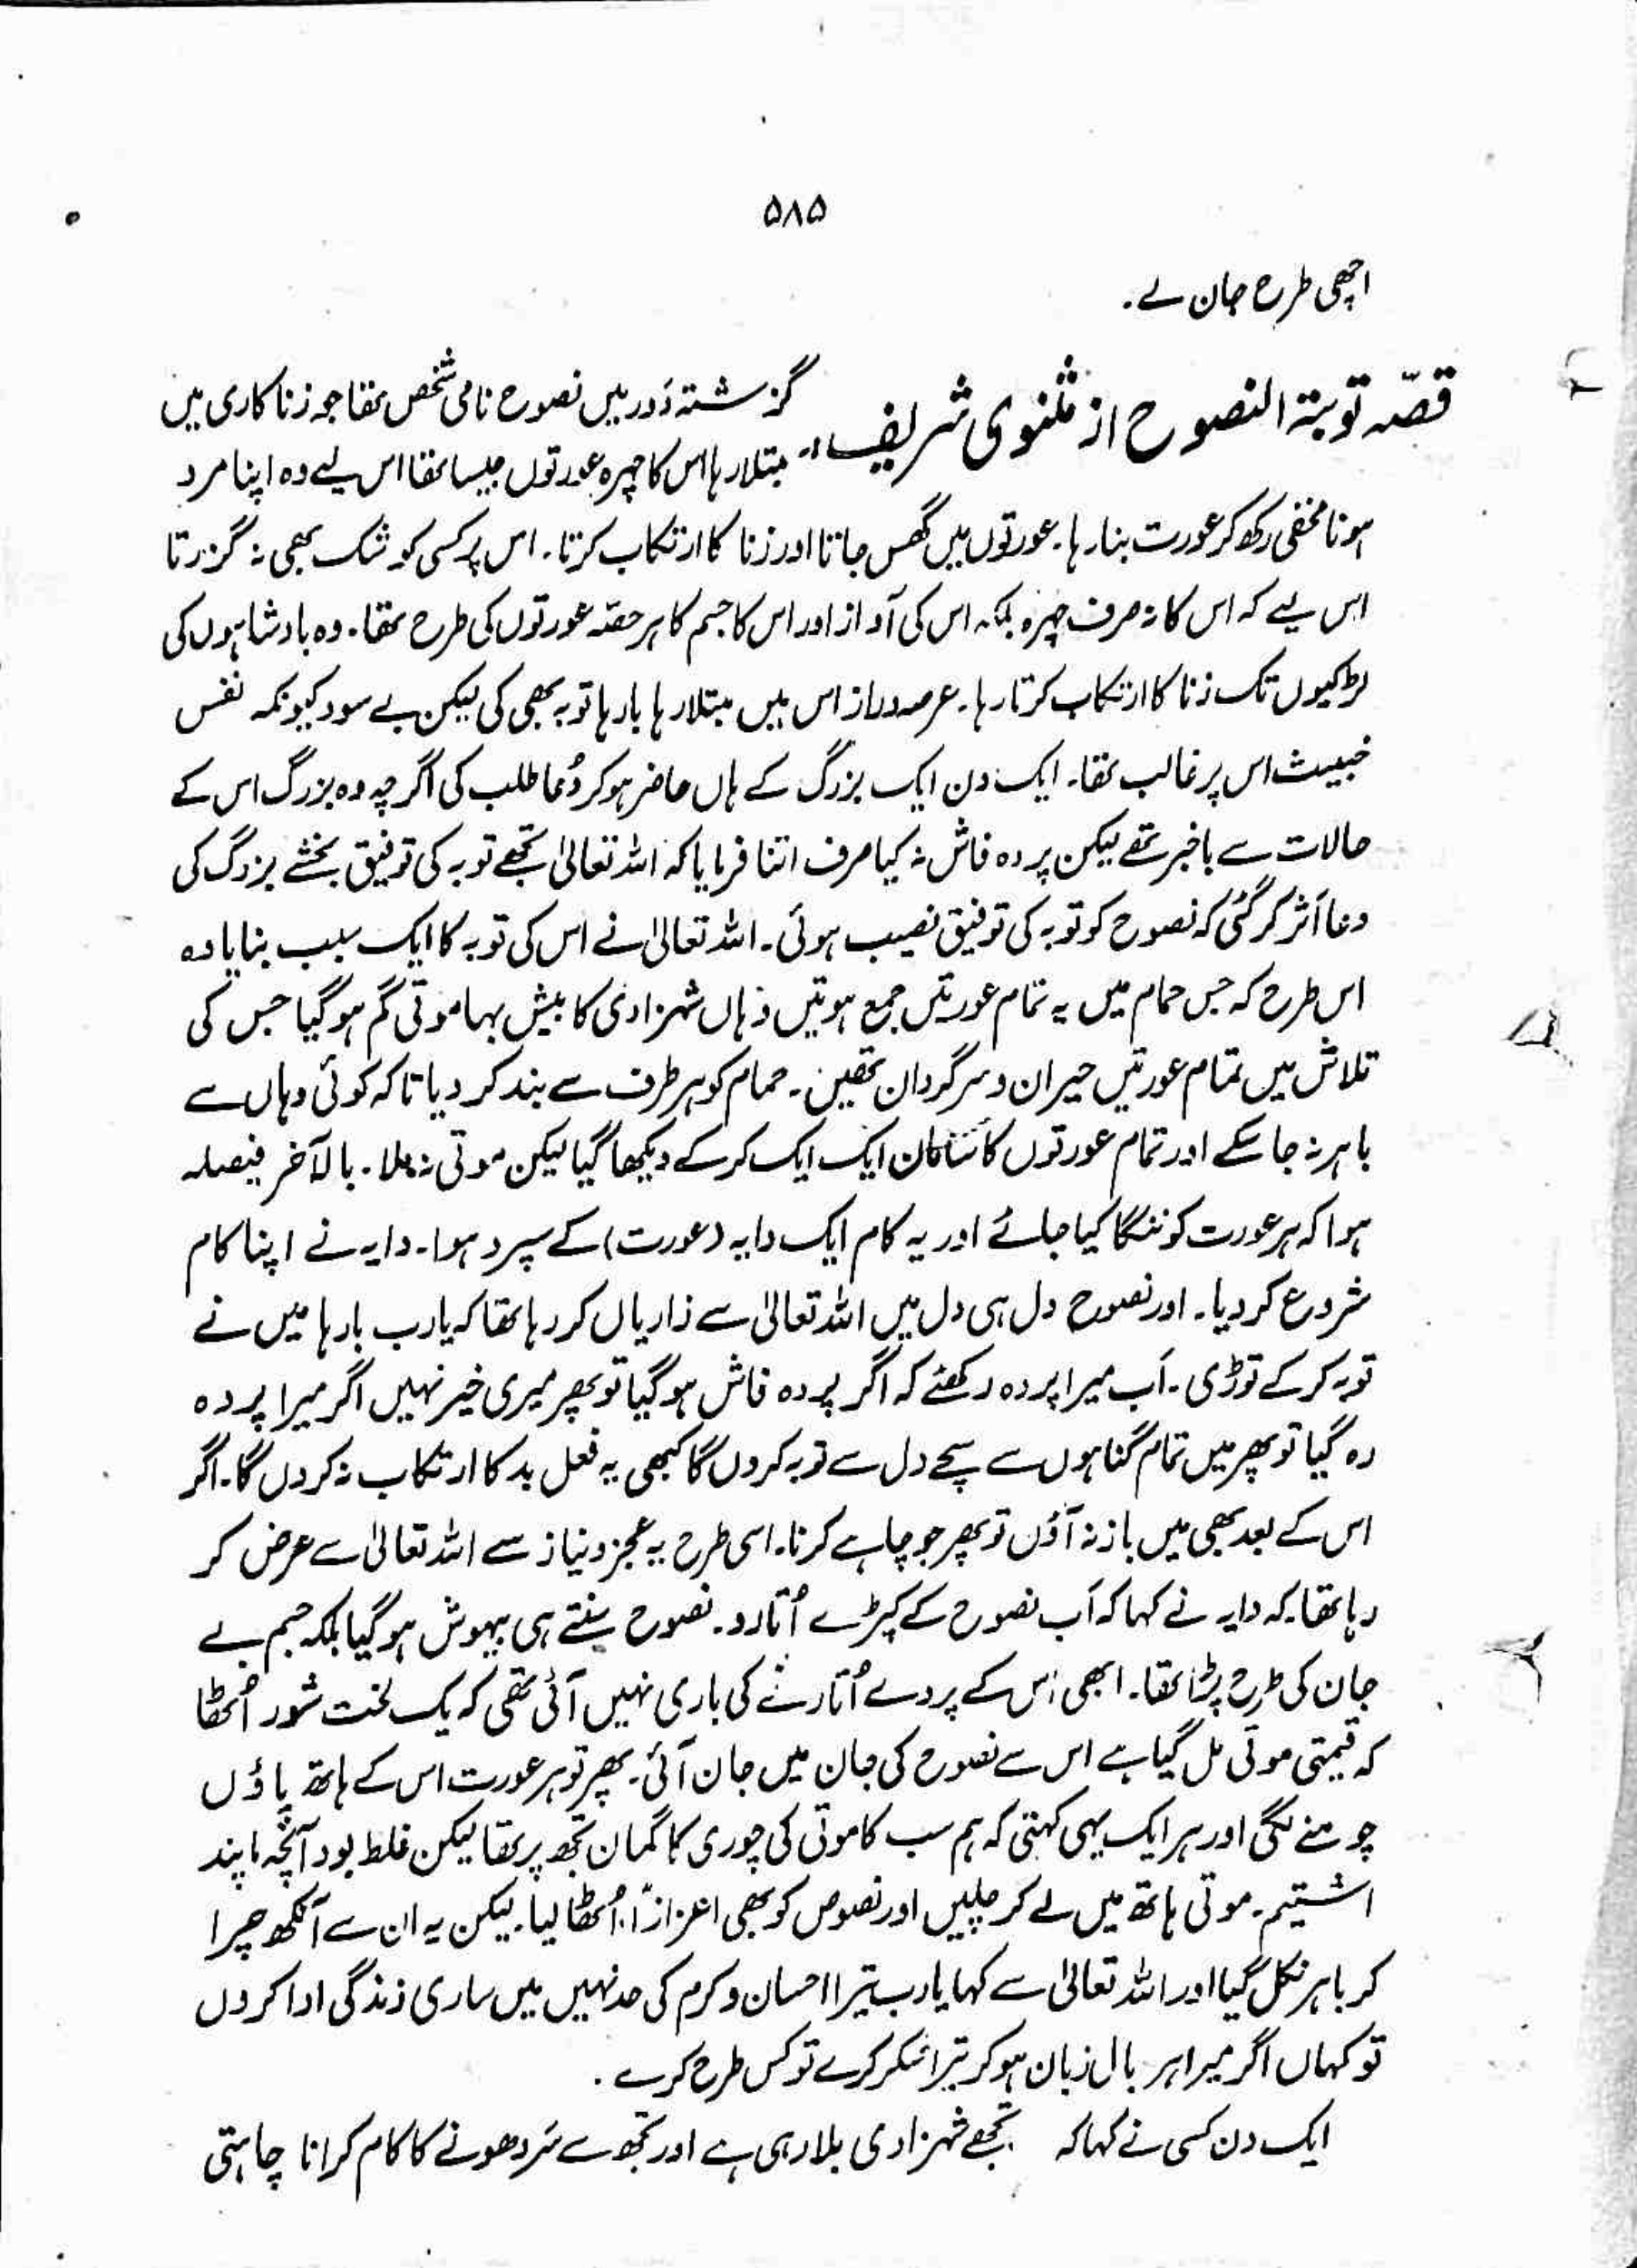 ۵۸۵
اچھی طرح جان لے ۔
قصّہ توبتہ النصوح از مثنوی شریف :۔ گزشتہ دَور میں نصوح نامی شخص تھا جو زنا کاری میں
مبتلا رہا اس کا چہرہ عورتوں جیسا تھا اس لیے وہ اپنا مرد
ہونا مخفی رکھ کر عورت بنا رہا ۔ عورتوں میں گھس جاتا اور زنا کا ارتکاب کرتا ۔ اس پر کسی کو شک بھی نہ گزرتا
اس لیے کہ اس کا نہ صرف چہرہ بلکہ اس کی آواز اور اس کا جسم کا ہر حصّہ عورتوں کی طرح تھا ۔ وہ بادشاہوں کی
لڑکیوں تک زنا کا ارتکاب کرتا رہا ۔ عرصہ دراز اس میں مبتلا رہا بارہا توبہ بھی کی لیکن بے سود کیونکہ نفس
خبیث اس پر غالب تھا ۔ ایک دن ایک بزرگ کے ہاں حاضر ہو کر دُعا طلب کی اگرچہ وہ بزرگ اس کے
حالات سے باخبر تھے لیکن پردہ فاش نہ کیا صرف اتنا فرمایا کہ اللہ تعالیٰ تجھے توبہ کی توفیق بخشے بزرگ کی
دعا اَثر کر گئی کہ نصوح کو توبہ کی توفیق نصیب ہوئی ۔ اللہ تعالیٰ نے اس کی توبہ کا ایک سبب بنایا وہ
اس طرح کہ جس حمام میں یہ تمام عورتیں جمع ہوتیں وہاں شہزادی کا بیش بہا موتی گم ہو گیا جس کی
تلاش میں تمام عورتیں حیران و سرگردان تھیں ۔ حمام کو ہر طرف سے بند کر دیا تاکہ کوئی وہاں سے
باہر نہ جا سکے اور تمام عورتوں کا سامان ایک ایک کر کے دیکھا گیا لیکن موتی نہ ملا ۔ بالآخر فیصلہ
ہوا کہ ہر عورت کو ننگا کیا جائے اور یہ کام ایک دایہ (عورت) کے سپرد ہوا ۔ دایہ نے اپنا کام
شروع کر دیا ۔ اور نصوح دل ہی دل میں اللہ تعالیٰ سے زاریاں کر رہا تھا کہ یارب بارہا میں نے
توبہ کر کے توڑی ۔ اَب میرا پردہ رکھئے کہ اگر پردہ فاش ہو گیا تو پھر میری خیر نہیں اگر میرا پردہ
رہ گیا تو پھر میں تمام گناہوں سے سچے دل سے توبہ کروں گا کبھی یہ فعل بد کا ارتکاب نہ کروں گا ۔ اگر
اس کے بعد بھی میں باز نہ آؤں تو پھر جو چاہے کرنا ۔ اسی طرح یہ عجز و نیاز سے اللہ تعالیٰ سے عرض کر
رہا تھا ۔ کہ دایہ نے کہا کہ اَب نصوح کے کپڑے اُتارو ۔ نصوح سنتے ہی بیہوش ہو گیا بلکہ جسم بے
جان کی طرح پڑا تھا ۔ ابھی اس کے پردے اُتارنے کی باری نہیں آئی تھی کہ یک لخت شور اُٹھا
کہ قیمتی موتی مل گیا ہے اس سے نصوح کی جان میں جان آئی ۔ پھر تو ہر عورت اس کے ہاتھ پاؤں
چومنے لگی اور ہر ایک یہی کہتی کہ ہم سب کا موتی کی چوری کا گمان تجھ پر تھا لیکن غلط بود آنچہ ما پند
اشتیم ۔ موتی ہاتھ میں لے کر چلیں اور نصوص کو بھی اعزازاً اُٹھا لیا ۔ لیکن یہ ان سے آنکھ چرا
کر باہر نکل گیا اور اللہ تعالیٰ سے کہا یارب تیرا احسان و کرم کی حد نہیں میں ساری زندگی ادا کروں
تو کہاں اگر میرا ہر بال زبان ہو کر تیرا شکر کرے تو کس طرح کرے ۔
ایک دن کسی نے کہا کہ تجھے شہزادی بلا رہی ہے اور تجھ سے سَر دھونے کا کام کرانا چاہتی